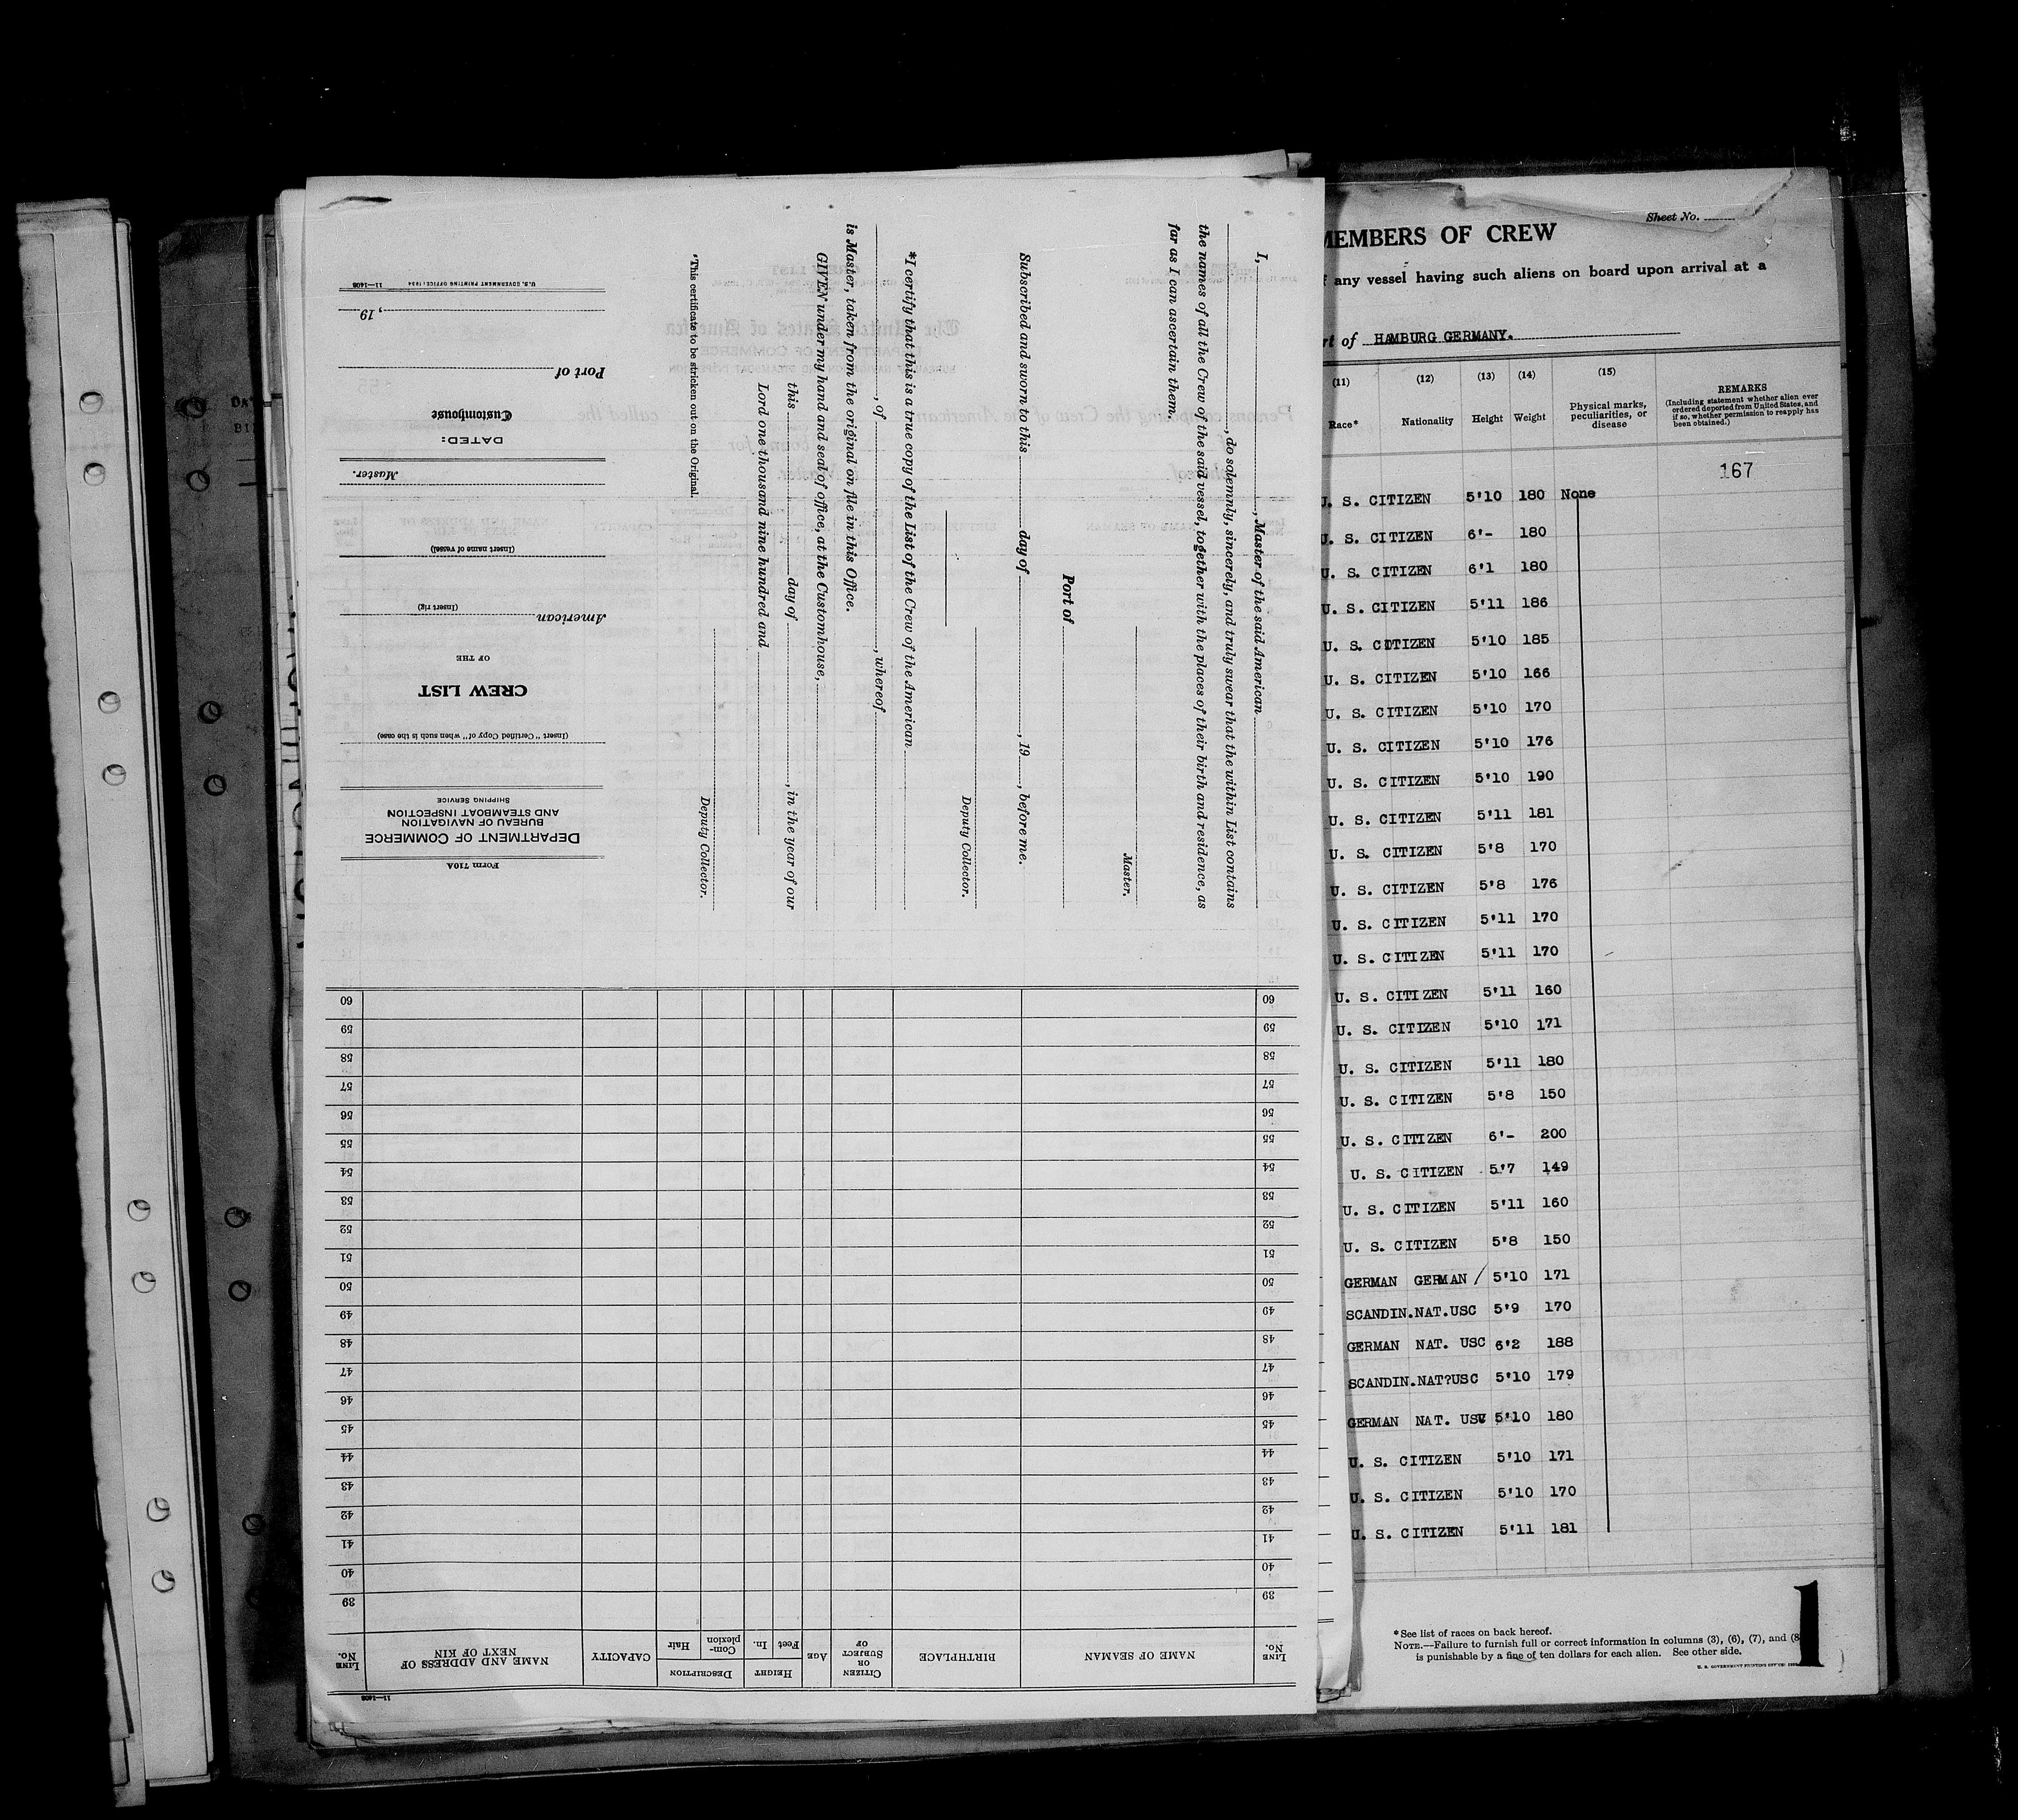 I, , Master of the said American
, do solemnly, sincerely, and truly swear that the within List contains
the names of all the Crew of the said vessel, together with the places of their birth and residence, as
far as I can ascertain them.
Master.
Port of
Subscribed and sworn to this day of , 19 , before me.
Deputy Collector.
*I certify that this is a true copy of the List of the Crew of the American
, of , whereof
is Master, taken from the original on file in this Office.
GIVEN under my hand and seal of office, at the Customhouse,
this day of , in the year of our
Lord one thousand nine hundred and
Deputy Collector.
*This certificate to be stricken out on the Original.
Form 710A
DEPARTMENT OF COMMERCE
BUREAU OF NAVIGATION
AND STEAMBOAT INSPECTION
SHIPPING SERVICE
(Insert "Certified Copy of" when such is the case)
CREW LIST
OF THE
American
(Insert rig)
(Insert name of vessel)
Master.
DATED:
Customhouse
Port of
, 19
U.S. GOVERNMENT PRINTING OFFICE: 1934 11—1408
11—1408
LINE No. NAME OF SEAMAN BIRTHPLACE CITIZEN OR SUBJECT OF AGE HEIGHT Feet In. DESCRIPTION Complexion Hair CAPACITY NAME AND ADDRESS OF NEXT OF KIN LINE No.
39 39
40 40
41 41
42 42
43 43
44 44
45 45
46 46
47 47
48 48
49 49
50 50
51 51
52 52
53 53
54 54
55 55
56 56
57 57
58 58
59 59
60 60
Sheet No.
MEMBERS OF CREW
any vessel having such aliens on board upon arrival at a
rt of HAMBURG GERMANY.
(11) (12) (13) (14) (15)
Race* Nationality Height Weight Physical marks, peculiarities, or disease
REMARKS
(Including statement whether alien ever
ordered deported from United States, and
if so, whether permission to reapply has
been obtained.)
167
U. S. CITIZEN 5'10 180 None
U. S. CITIZEN 6'- 180
U. S. CITIZEN 6'1 180
U. S. CITIZEN 5'11 186
U. S. CITIZEN 5'10 185
U. S. CITIZEN 5'10 166
U. S. CITIZEN 5'10 170
U. S. CITIZEN 5'10 176
U. S. CITIZEN 5'10 190
U. S. CITIZEN 5'11 181
U. S. CITIZEN 5'8 170
U. S. CITIZEN 5'8 176
U. S. CITIZEN 5'11 170
U. S. CITIZEN 5'11 170
U. S. CITIZEN 5'11 160
U. S. CITIZEN 5'10 171
U. S. CITIZEN 5'11 180
U. S. CITIZEN 5'8 150
U. S. CITIZEN 6'- 200
U. S. CITIZEN 5'7 149
U. S. CITIZEN 5'11 160
U. S. CITIZEN 5'8 150
GERMAN GERMAN / 5'10 171
SCANDIN.NAT.USC 5'9 170
GERMAN NAT. USC 6'2 188
SCANDIN.NAT?USC 5'10 179
GERMAN NAT. USC 5'10 180
U. S. CITIZEN 5'10 171
U. S. CITIZEN 5'10 170
U. S. CITIZEN 5'11 181
*See list of races on back hereof.
NOTE.—Failure to furnish full or correct information in columns (3), (6), (7), and (8
is punishable by a fine of ten dollars for each alien. See other side.
1